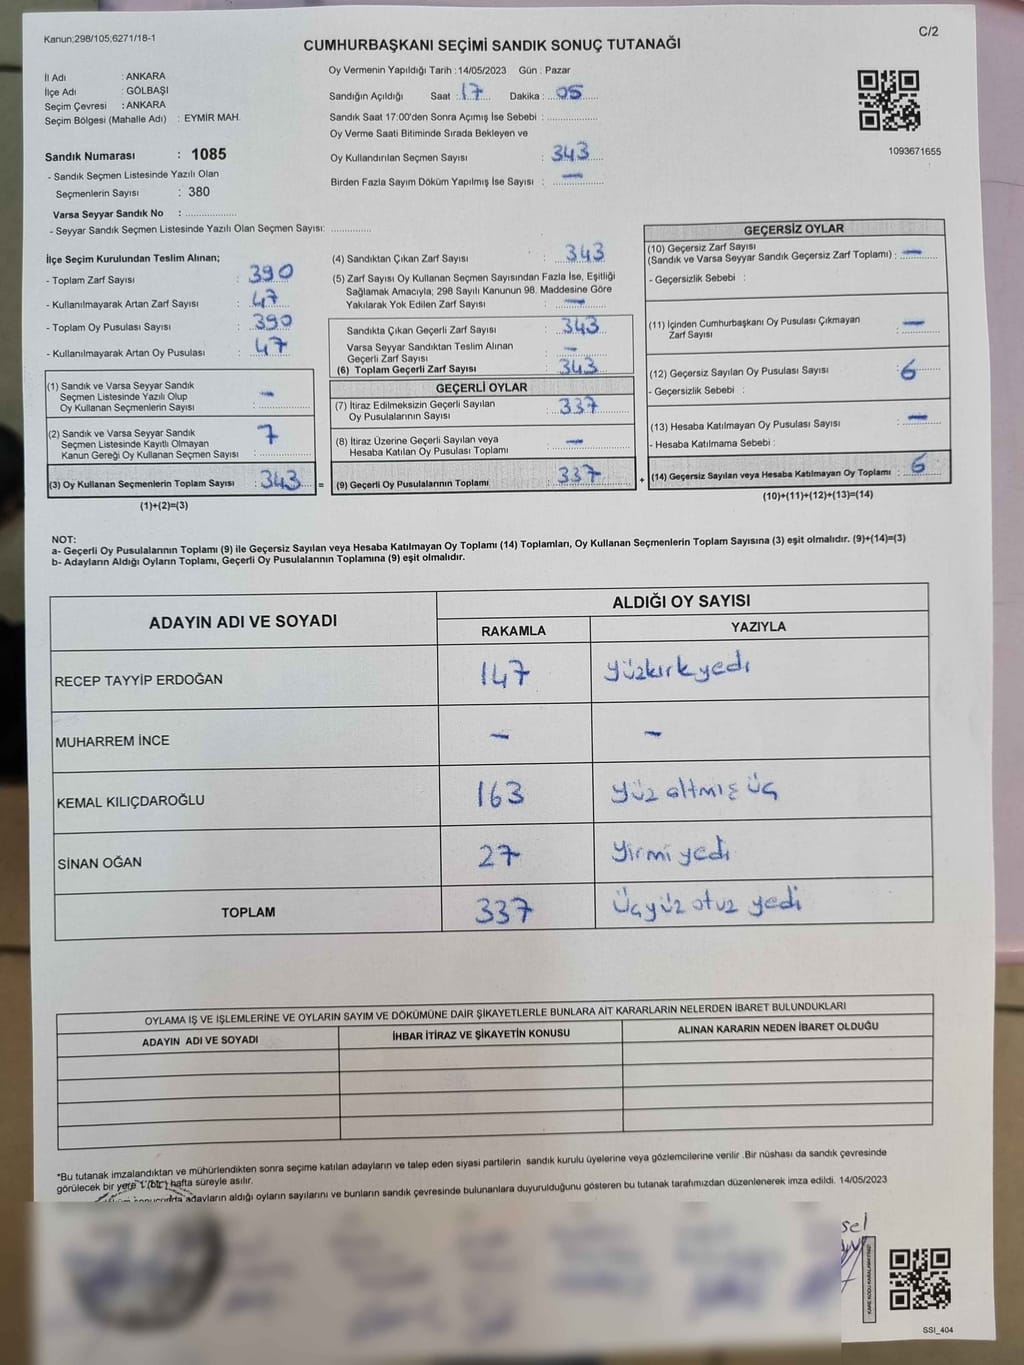 Kanun;298/105;6271/18-1
C/2
CUMHURBAŞKANI SEÇİMİ SANDIK SONUÇ TUTANAĞI
İl Adı : ANKARA
İlçe Adı : GÖLBAŞI
Seçim Çevresi : ANKARA
Seçim Bölgesi (Mahalle Adı) : EYMİR MAH.
Sandık Numarası : 1085
- Sandık Seçmen Listesinde Yazılı Olan
Seçmenlerin Sayısı : 380
Varsa Seyyar Sandık No : ..................
- Seyyar Sandık Seçmen Listesinde Yazılı Olan Seçmen Sayısı: ..............
Oy Vermenin Yapıldığı Tarih : 14/05/2023 Gün : Pazar
Sandığın Açıldığı Saat : 17 Dakika : 05
Sandık Saat 17:00'den Sonra Açımış İse Sebebi : ..................
Oy Verme Saati Bitiminde Sırada Bekleyen ve
Oy Kullandırılan Seçmen Sayısı : 343
Birden Fazla Sayım Döküm Yapılmış İse Sayısı : —
1093671655
İlçe Seçim Kurulundan Teslim Alınan;
- Toplam Zarf Sayısı : 390
- Kullanılmayarak Artan Zarf Sayısı : 47
- Toplam Oy Pusulası Sayısı : 390
- Kullanılmayarak Artan Oy Pusulası : 47
(1) Sandık ve Varsa Seyyar Sandık
Seçmen Listesinde Yazılı Olup
Oy Kullanan Seçmenlerin Sayısı : —
(2) Sandık ve Varsa Seyyar Sandık
Seçmen Listesinde Kayıtlı Olmayan
Kanun Gereği Oy Kullanan Seçmen Sayısı : 7
(3) Oy Kullanan Seçmenlerin Toplam Sayısı : 343 =
(1)+(2)=(3)
(4) Sandıktan Çıkan Zarf Sayısı : 343
(5) Zarf Sayısı Oy Kullanan Seçmen Sayısından Fazla İse, Eşitliği
Sağlamak Amacıyla; 298 Sayılı Kanunun 98. Maddesine Göre
Yakılarak Yok Edilen Zarf Sayısı : —
Sandıkta Çıkan Geçerli Zarf Sayısı : 343
Varsa Seyyar Sandıktan Teslim Alınan
Geçerli Zarf Sayısı : —
(6) Toplam Geçerli Zarf Sayısı : 343
GEÇERLİ OYLAR
(7) İtiraz Edilmeksizin Geçerli Sayılan
Oy Pusulalarının Sayısı : 337
(8) İtiraz Üzerine Geçerli Sayılan veya
Hesaba Katılan Oy Pusulası Toplamı : —
(9) Geçerli Oy Pusulalarının Toplamı : 337 +
GEÇERSİZ OYLAR
(10) Geçersiz Zarf Sayısı
(Sandık ve Varsa Seyyar Sandık Geçersiz Zarf Toplamı) : —
- Geçersizlik Sebebi :
(11) İçinden Cumhurbaşkanı Oy Pusulası Çıkmayan
Zarf Sayısı : —
(12) Geçersiz Sayılan Oy Pusulası Sayısı : 6
- Geçersizlik Sebebi :
(13) Hesaba Katılmayan Oy Pusulası Sayısı : —
- Hesaba Katılmama Sebebi :
(14) Geçersiz Sayılan veya Hesaba Katılmayan Oy Toplamı : 6
(10)+(11)+(12)+(13)=(14)
NOT:
a- Geçerli Oy Pusulalarının Toplamı (9) ile Geçersiz Sayılan veya Hesaba Katılmayan Oy Toplamı (14) Toplamları, Oy Kullanan Seçmenlerin Toplam Sayısına (3) eşit olmalıdır. (9)+(14)=(3)
b- Adayların Aldığı Oyların Toplamı, Geçerli Oy Pusulalarının Toplamına (9) eşit olmalıdır.
ADAYIN ADI VE SOYADI
ALDIĞI OY SAYISI
RAKAMLA YAZIYLA
RECEP TAYYİP ERDOĞAN 147 Yüzkırkyedi
MUHARREM İNCE — —
KEMAL KILIÇDAROĞLU 163 Yüz altmış üç
SİNAN OĞAN 27 Yirmi yedi
TOPLAM 337 Üçyüz otuz yedi
OYLAMA İŞ VE İŞLEMLERİNE VE OYLARIN SAYIM VE DÖKÜMÜNE DAİR ŞİKAYETLERLE BUNLARA AİT KARARLARIN NELERDEN İBARET BULUNDUKLARI
ADAYIN ADI VE SOYADI İHBAR İTİRAZ VE ŞİKAYETİN KONUSU ALINAN KARARIN NEDEN İBARET OLDUĞU
*Bu tutanak imzalandıktan ve mühürlendikten sonra seçime katılan adayların ve talep eden siyasi partilerin sandık kurulu üyelerine veya gözlemcilerine verilir .Bir nüshası da sandık çevresinde
görülecek bir yere 1 (bir) hafta süreyle asılır.
adayların aldığı oyların sayılarını ve bunların sandık çevresinde bulunanlara duyurulduğunu gösteren bu tutanak tarafımızdan düzenlenerek imza edildi. 14/05/2023
sel
SSI_404